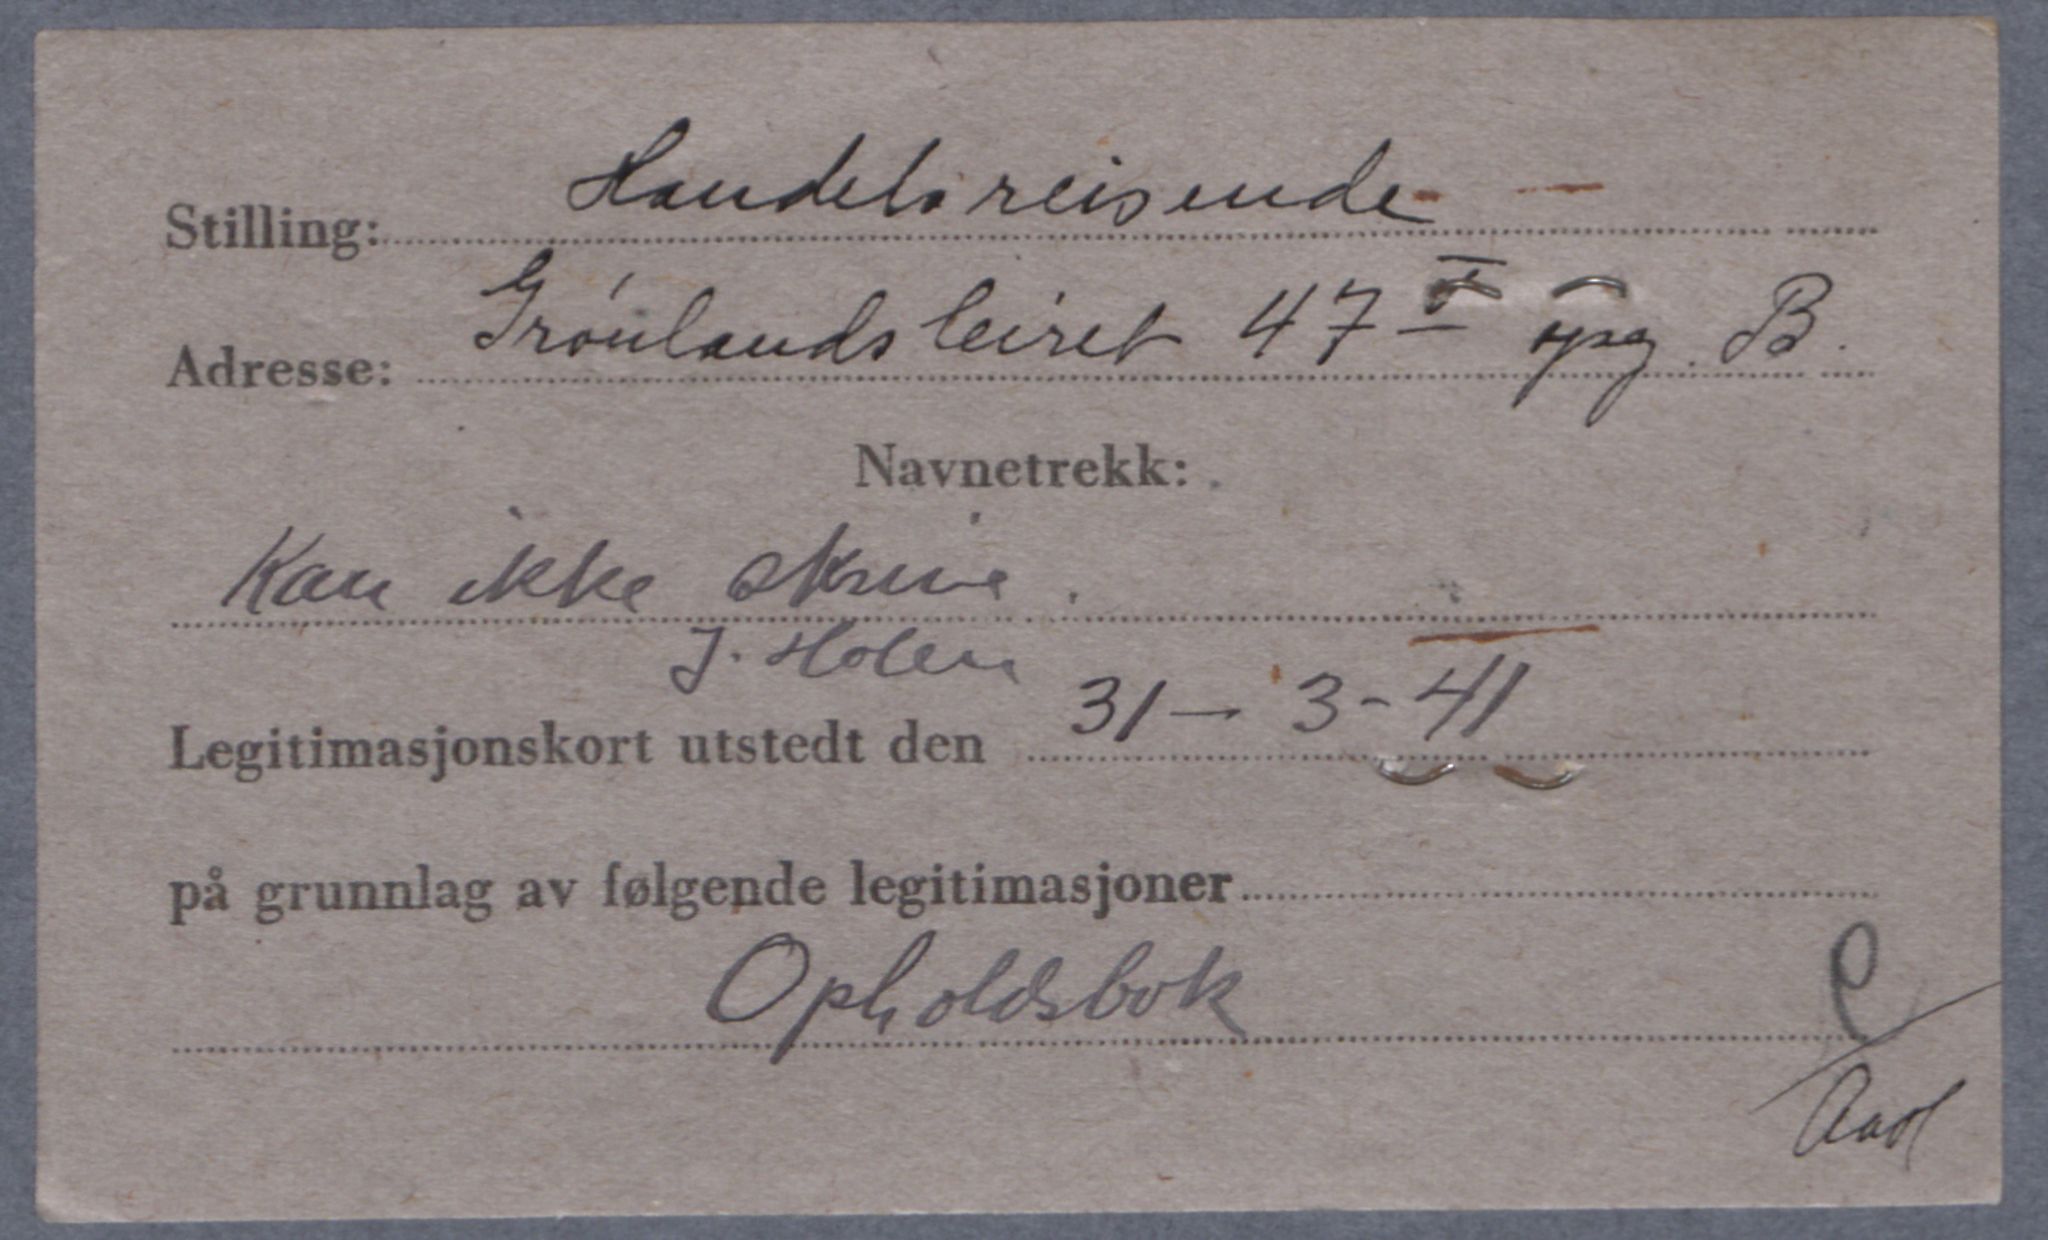 Stilling: Handelsreisende
Adresse: Grónlandsleiret 47 I opg. B.
Navnetrekk:
Kan ikke skrive.
J. Holen
Legitimasjonskort utstedt den 31-3-41
på grunnlag av følgende legitimasjoner
Opholdsbok